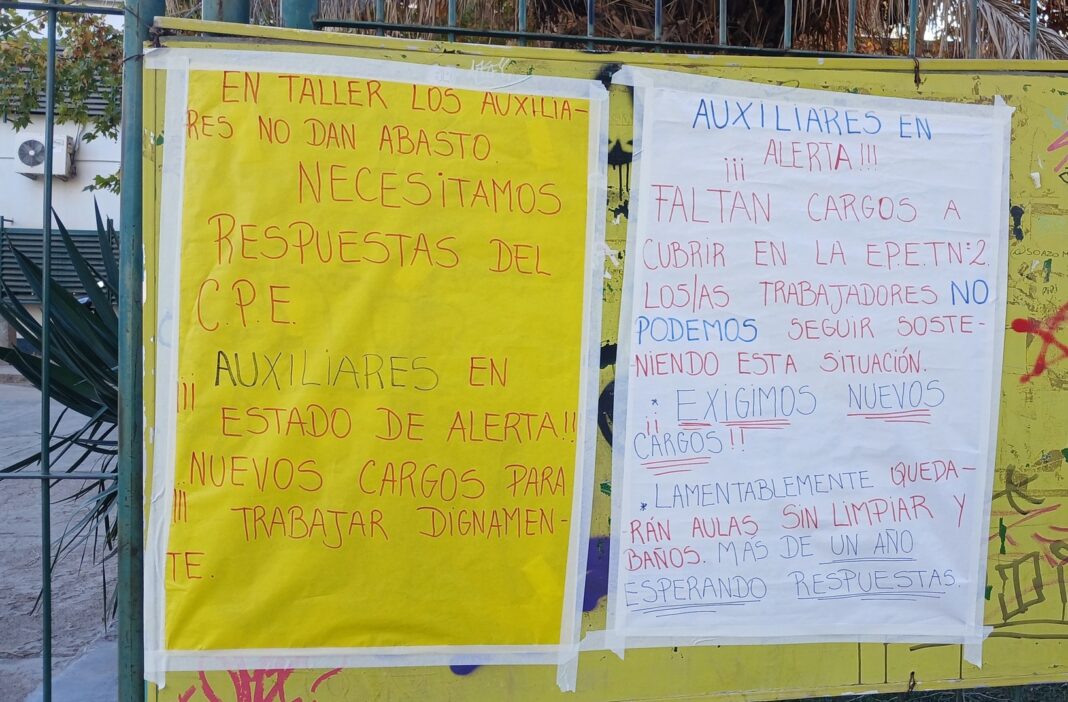 EN TALLER LOS AUXILIA-
RES NO DAN ABASTO.
NECESITAMOS
RESPUESTAS DEL
C.P.E.
¡¡¡ AUXILIARES EN
ESTADO DE ALERTA!!
NUEVOS CARGOS PARA
¡¡¡ TRABAJAR DIGNAMEN-
TE.
AUXILIARES EN
¡¡¡ ALERTA!!!
FALTAN CARGOS A
CUBRIR EN LA E.P.E.T.Nº2.
LOS/AS TRABAJADORES NO
PODEMOS SEGUIR SOSTE-
NIENDO ESTA SITUACIÓN.
* ¡¡ EXIGIMOS NUEVOS
CARGOS!!
* LAMENTABLEMENTE QUEDA-
RÁN AULAS SIN LIMPIAR Y
BAÑOS. MÁS DE UN AÑO
ESPERANDO RESPUESTAS.